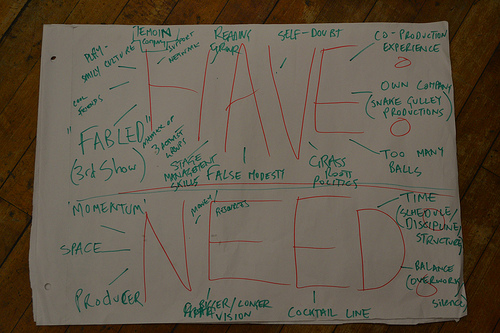 TEMOIN
COMPANY/
SUPPORT
NETWORK
READING
GROUP
SELF-DOUBT
CO-PRODUCTION
EXPERIENCE
PLAY-
DAILY CULTURE
COOL
FRIENDS
HAVE
OWN COMPANY
(SNAKE GULLEY
PRODUCTIONS)
"FABLED"
(3rd Show)
MEMBER OF
3 ARTIST
GROUPS
STAGE
MANAGEMENT
SKILLS
FALSE MODESTY
GRASS
ROOTS
POLITICS
TOO MANY
BALLS
'MOMENTUM'
MONEY/
RESOURCES
TIME
(SCHEDULE/
DISCIPLINE/
STRUCTURE)
SPACE
NEED
PRODUCER
BIGGER/LONGER
VISION
COCKTAIL LINE
BALANCE
(OVERWORK)
SILENCE